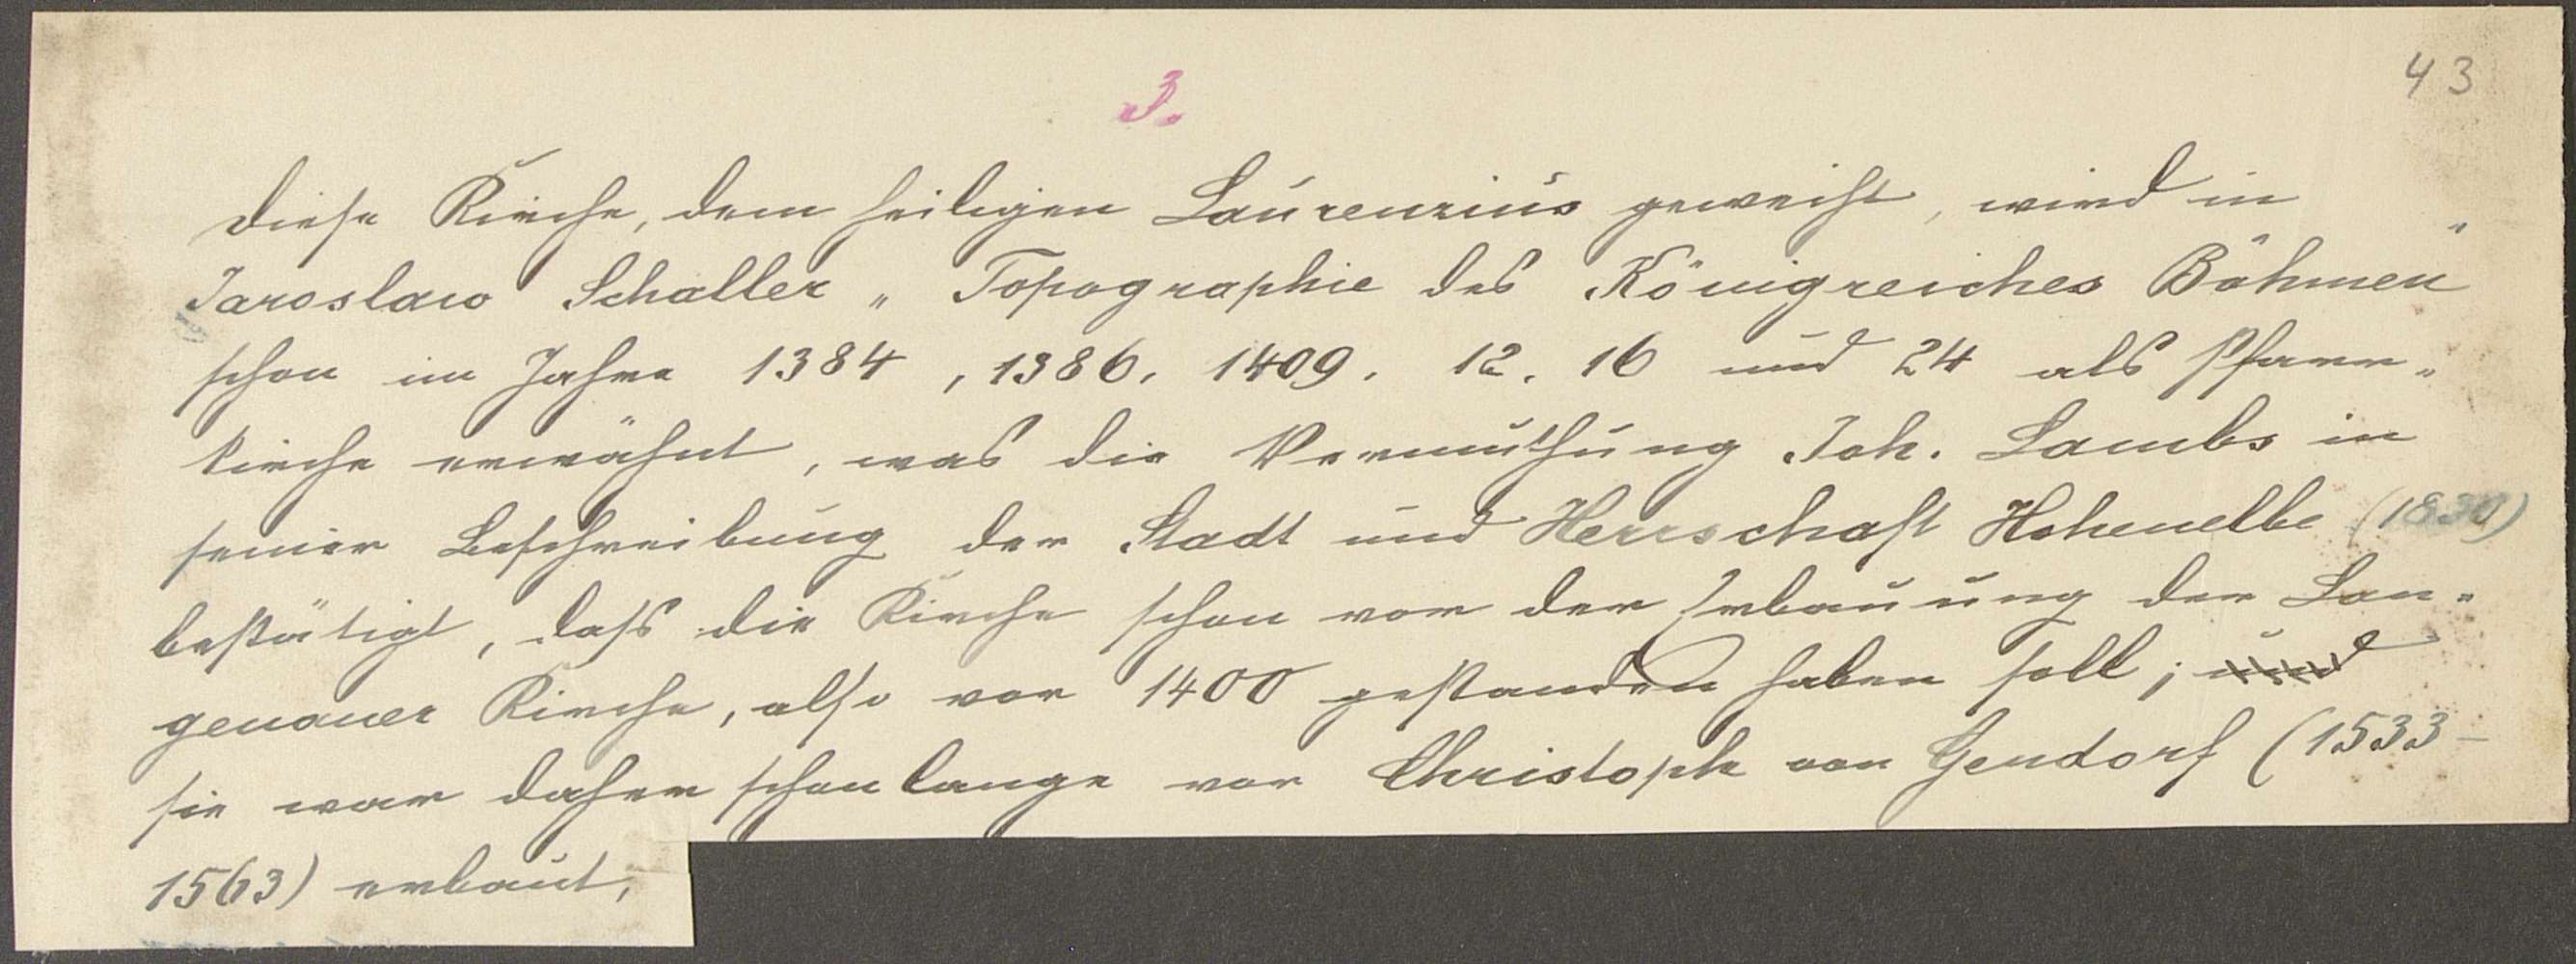 43
3.
Diese Kirche, dem heiligen Laurenzius geweiht, wird in
Jaroslaw Schaller „Topographie des Königreiches Böhmen"
schon im Jahre 1384, 1386. 1409. 12. 16 und 24 als Pfarr-
kirche erwähnt, was die Vermuthung Joh. Lambs in
seiner Beschreibung der Stadt und Herrschaft Hohenelbe (1830)
bestätigt, dass die Kirche schon vor der Erbauung der Lan-
genauer Kirche, also vor 1400 gestanden haben soll; und
sie war daher schon lange vor Christoph von Gendorf (1533–
1563) erbaut,